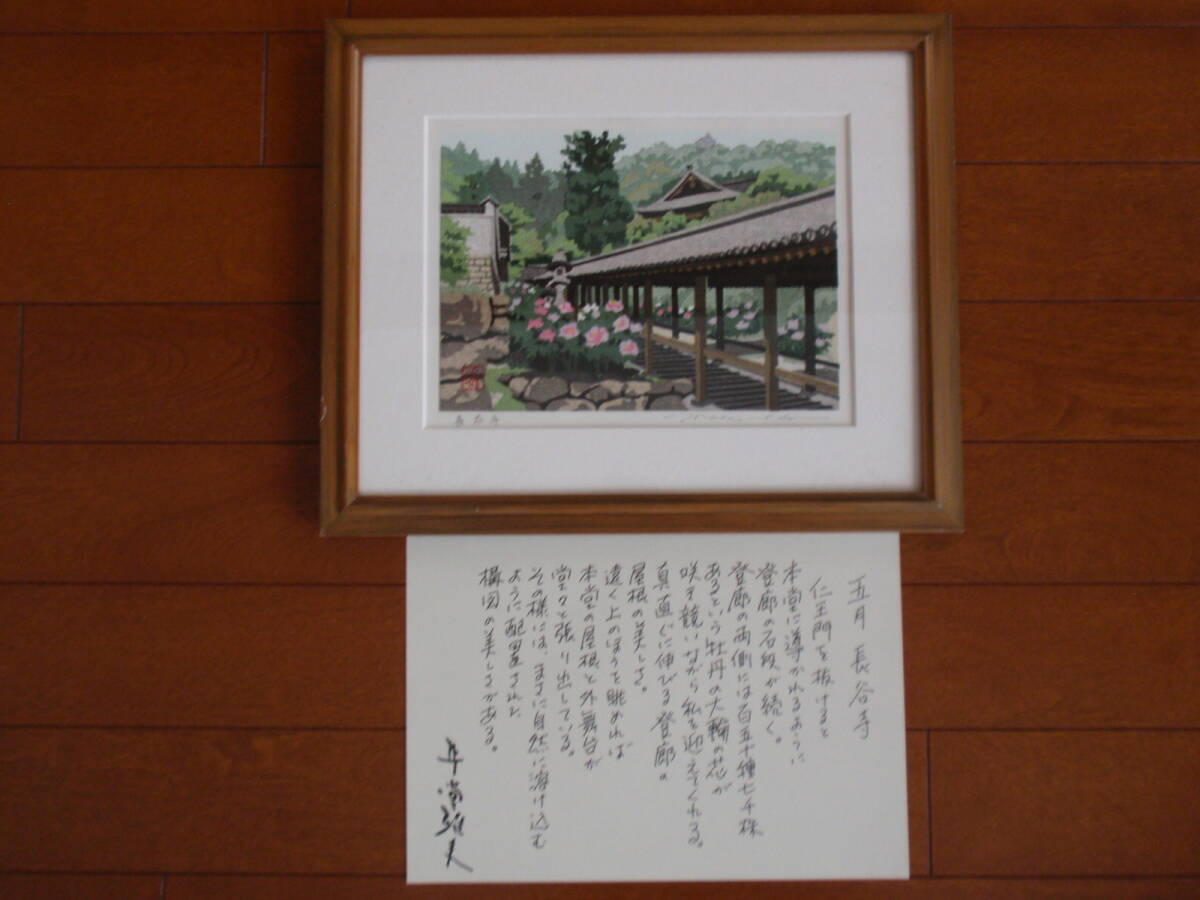 長谷寺
五月 長谷寺
仁王門を抜けると
本堂に導かれるように
登廊の石段が続く。
登廊の両側には百五十種七千株
あるという牡丹の大輪の花が
咲き競いながら私を迎えてくれる。
真直ぐに伸びる登廊の
屋根の美しさ。
遠く上のほうを眺めれば
本堂の屋根と外舞台が
堂々と張り出している。
その様には、まさに自然に溶け込む
ように配置された
構図の美しさがある。